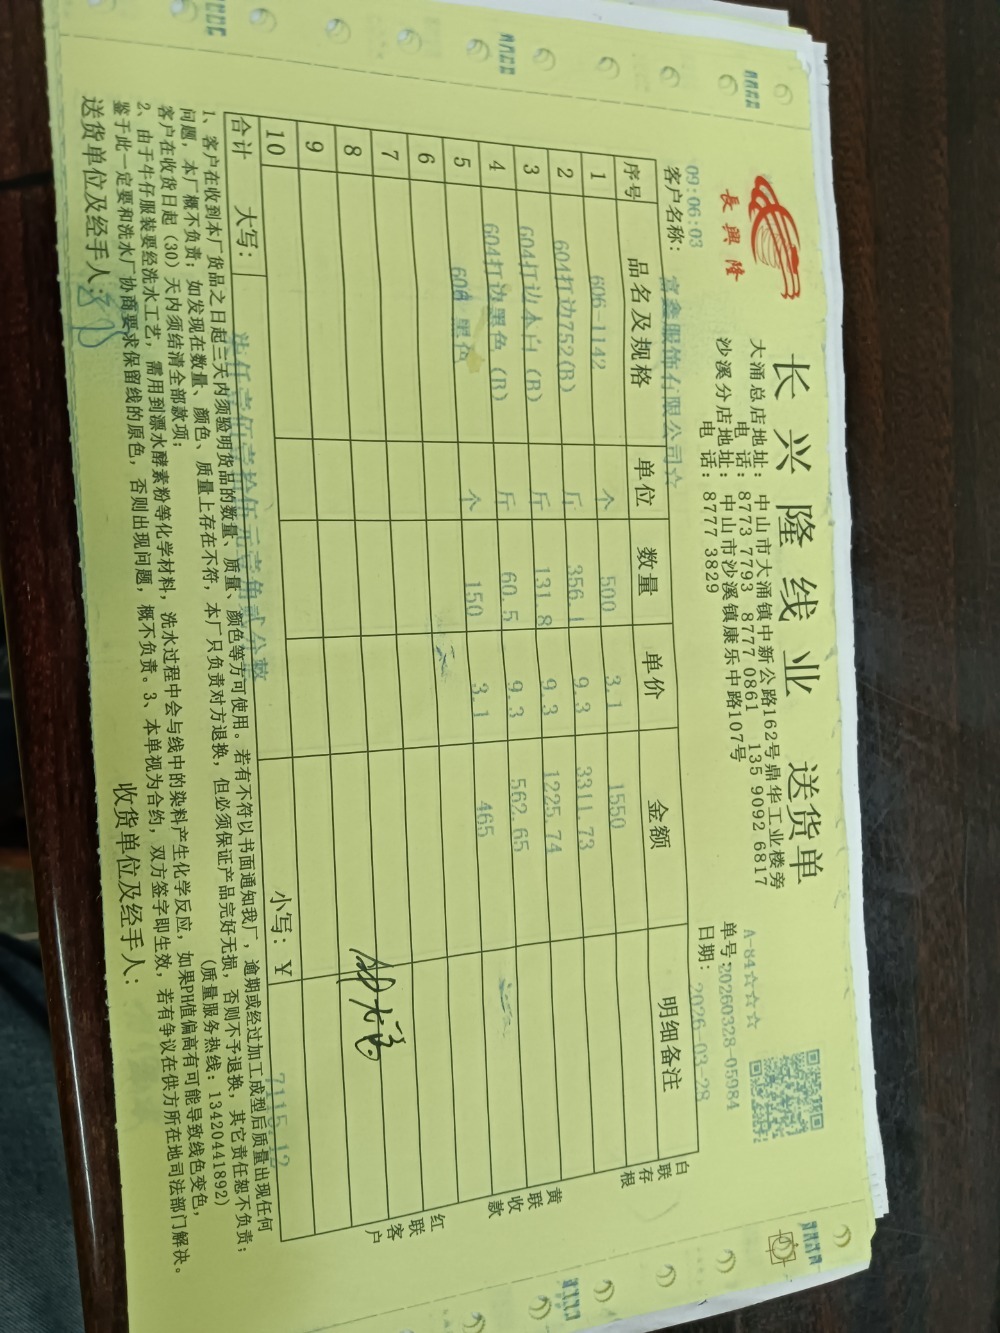 長興隆
长兴隆线业 送货单
大涌总店地址: 中山市大涌镇中新公路162号鼎华工业楼旁
电 话: 8773 7793 8777 0861 135 9092 6817
沙溪分店地址: 中山市沙溪镇康乐中路107号
电 话: 8777 3829
A-84☆☆☆
单号:20260328-05984
日期: 2026-03-28
09:06:03
客户名称: 富鑫服饰有限公司☆
序号 品名及规格 单位 数量 单价 金额 明细备注
1 606-1142 个 500 3.1 1550
2 604打边752(B) 斤 356.1 9.3 3311.73
3 604打边本白(B) 斤 131.8 9.3 1225.74
4 604打边黑色(B) 斤 60.5 9.3 562.65
5 608 黑色 个 150 3.1 465
6
7
8
9
10
合计 大写: 柒仟壹佰壹拾伍元壹角贰分整 小写: ¥ 7115.12
白联存根
黄联收款
红联客户
1、客户在收到本厂货品之日起三天内须验明货品的数量、质量、颜色等方可使用。若有不符以书面通知我厂, 逾期或经过加工成型后质量出现任何
问题, 本厂概不负责; 如发现在数量、颜色、质量上存在不符, 本厂只负责对方退换, 但必须保证产品完好无损, 否则不予退换, 其它责任恕不负责;
客户在收货日起 (30) 天内须结清全部款项; (质量服务热线: 13420441892)
2、由于牛仔服装要经洗水工艺, 需用到漂水酵素粉等化学材料, 洗水过程中会与线中的染料产生化学反应, 如果PH值偏高有可能导致线色变色,
鉴于此一定要和洗水厂协商要求保留线的原色, 否则出现问题, 概不负责。3、本单视为合约, 双方签字即生效, 若有争议在供方所在地司法部门解决。
送货单位及经手人: 收货单位及经手人: